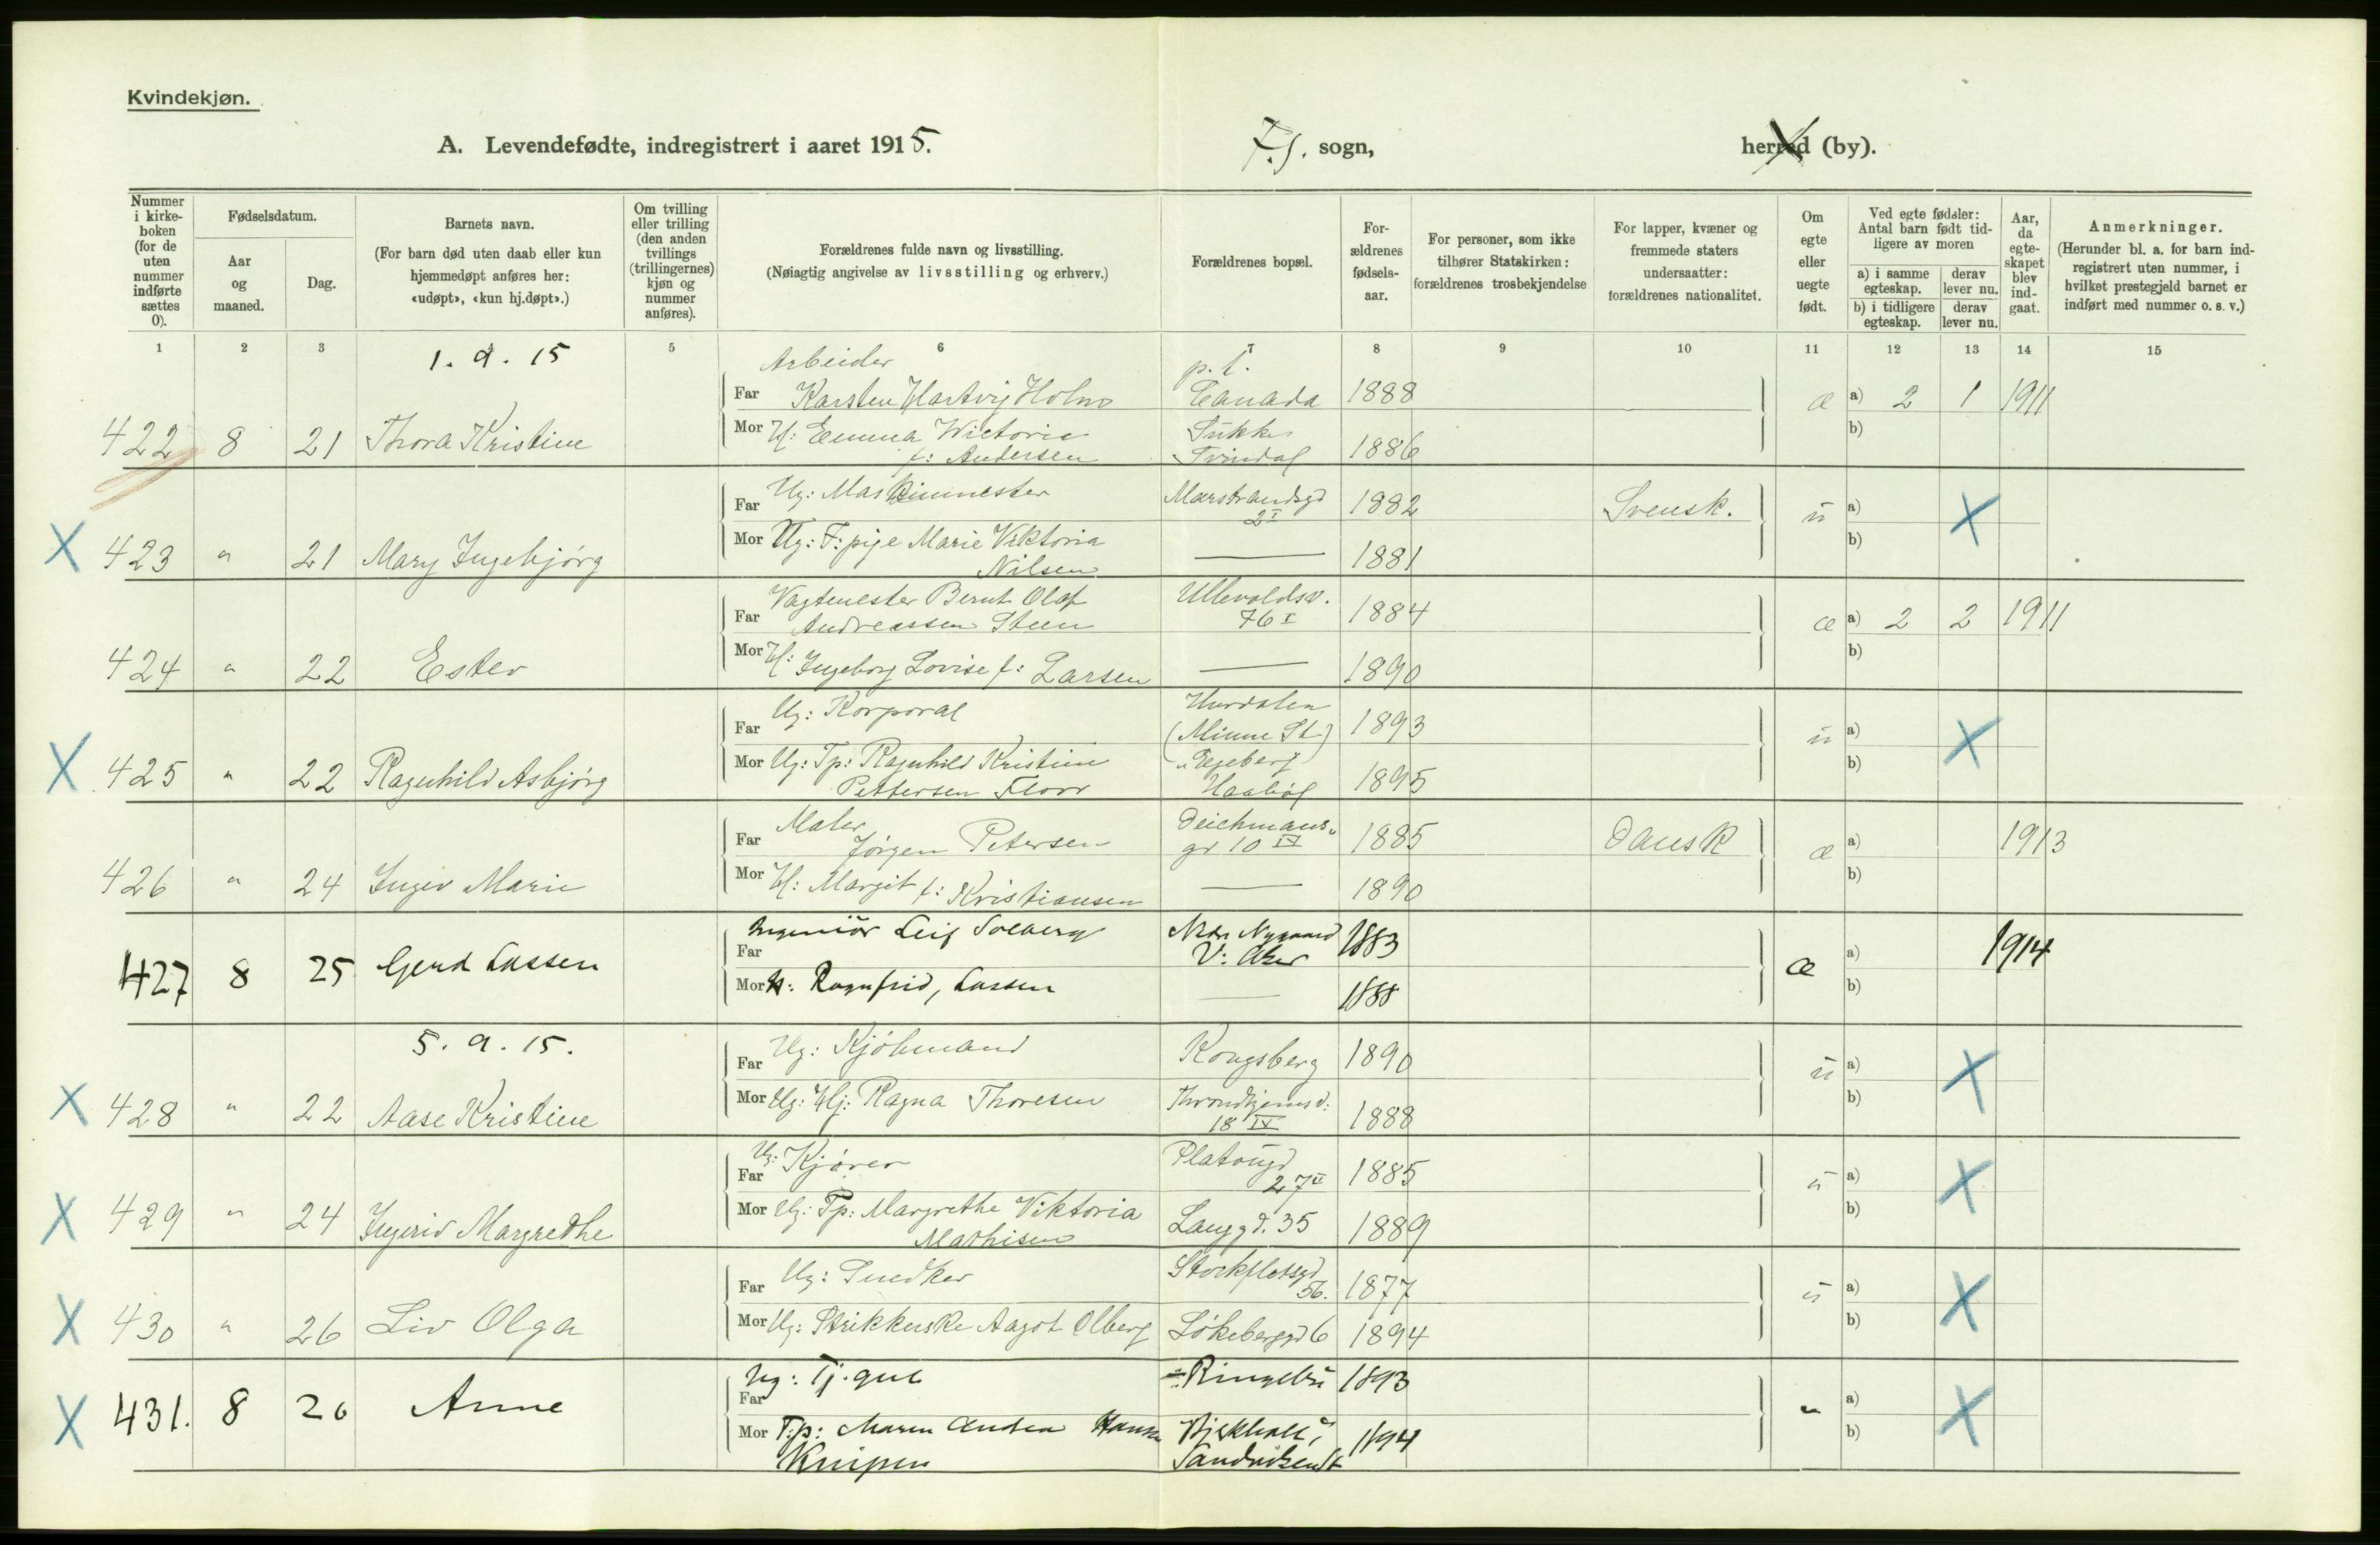 Kvindekjøn.
A. Levendefødte, indregistrert i aaret 1915.
F.S. sogn,
herred (by).
Nummer i kirke-boken (for de uten nummer indførte sættes 0).
Fødselsdatum.
Aar og maaned.
Dag.
Barnets navn.
(For barn død uten daab eller kun hjemmedøpt anføres her: «udøpt», «kun hj.døpt».)
Om tvilling eller trilling (den anden tvillings (trillingernes) kjøn og nummer anføres).
Forældrenes fulde navn og livsstilling.
(Nøiagtig angivelse av livsstilling og erhverv.)
Forældrenes bopæl.
For-ældrenes fødsels-aar.
For personer, som ikke tilhører Statskirken: forældrenes trosbekjendelse
For lapper, kvæner og fremmede staters undersaatter: forældrenes nationalitet.
Om egte eller uegte født.
Ved egte fødsler: Antal barn født tid-ligere av moren
a) i samme egteskap.
derav lever nu.
b) i tidligere egteskap.
derav lever nu.
Aar, da egte-skapet blev ind-gaat.
Anmerkninger.
(Herunder bl. a. for barn ind-registrert uten nummer, i hvilket prestegjeld barnet er indført med nummer o. s. v.)
1 2 3 4 5 6 7 8 9 10 11 12 13 14 15
1. 9. 15
Arbeider p. t.
Far Karsten Hartvig Holm Canada 1888 æ a) 2 1 1911
422 8 21 Thora Kristine Mor H: Emma Victoria Sukke 1886 b)
f: Andersen Tvindal
Far Ug: Maskinmester Marstrandsgd 2 I 1882 Svensk. u a) X
X 423 " 21 Mary Ingebjørg Mor Ug: F: pige Marie Viktoria — 1881 b)
Nilsen
Vagtmester Bernt Olaf Ullevoldsv.
Far Andreassen Steen 76 I 1884 æ a) 2 2 1911
424 " 22 Ester Mor H: Ingeborg Lovise f: Larsen — 1890 b)
Far Ug: Korporal Hurdalen (Minne St) 1893 u a) X
X 425 " 22 Ragnhild Asbjørg Mor Ug: Tp: Ragnhild Kristine Ekeberg 1895 b)
Pettersen Floor
Maler Deichmans-
Far Jörgen Petersen gd 10 IV 1885 Dansk æ a) 1913
426 " 24 Inger Marie Mor H: Margit f: Kristiansen — 1890 b)
Far Ingeniör Leif Solberg Nedr Nygaard V: Aker 1883 æ a) 1914
427 8 25 Gerd Lassen Mor H: Ragnfrid, Lassen — 1888 b)
5. 9. 15.
Far Ug: Kjöbmand Kongsberg 1890 u a) X
X 428 " 22 Aase Kristine Mor Ug: Hj: Ragna Thoresen Throndhjemsv: 18 IV 1888 b)
Far Ug: Kjører Platougd 27 II 1885 u a) X
X 429 " 24 Ingerid Margrethe Mor Ug: Tp: Margrethe Viktoria Langgd. 35 1889 b)
Mathisen
Far Ug: Snedker Stockfletsgd 56. 1877 u a) X
X 430 " 26 Liv Olga Mor Ug: Strikkerske Aagot Olberg Løkeberggd 6 1894 b)
Far Ug: Tj. gut Ringebu 1893 " a) X
X 431. 8 26 Anne Mor T.p: Maren Andrea Hansen 1894 b)
Knipen